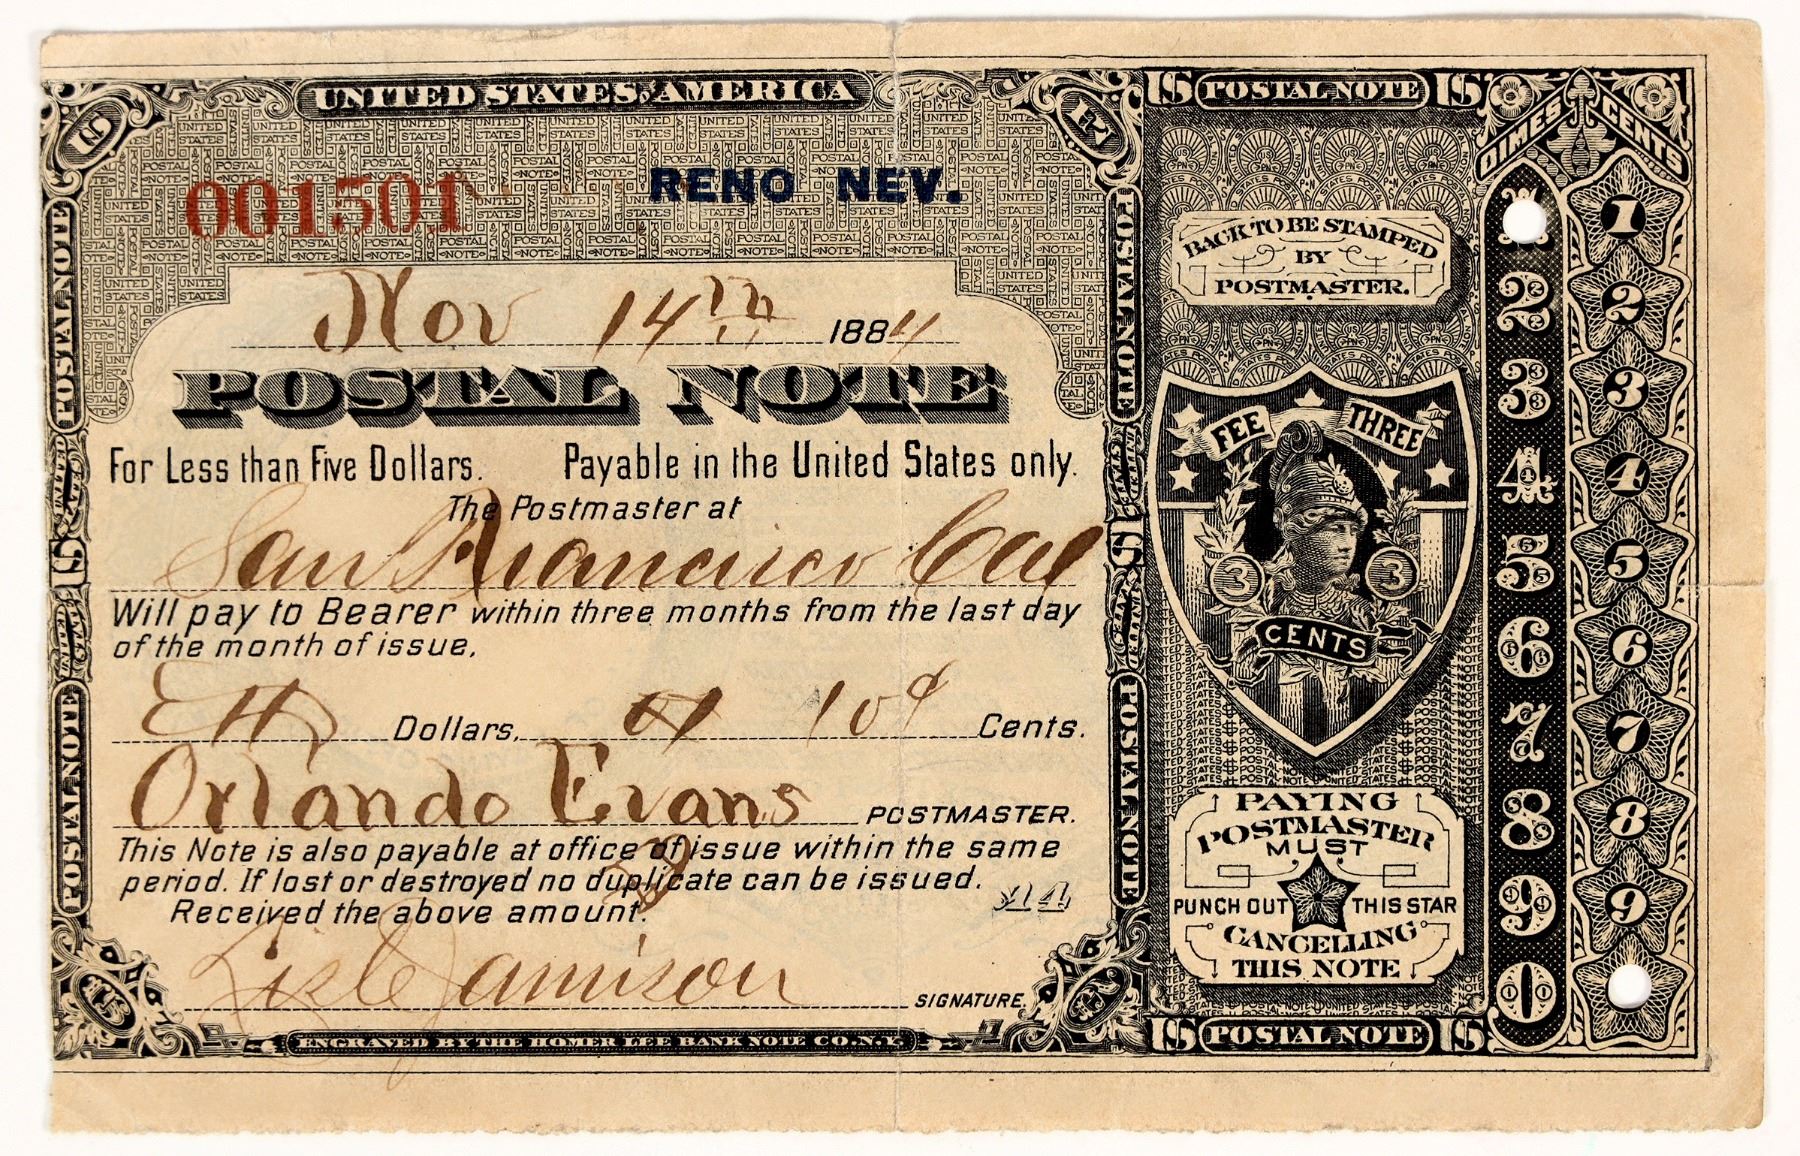 UNITED STATES OF AMERICA
001501
RENO NEV.
Nov 14th 1884
POSTAL NOTE
For Less than Five Dollars. Payable in the United States only.
The Postmaster at
San Francisco Cal
Will pay to Bearer within three months from the last day
of the month of issue,
Dollars, 10¢ Cents.
Orlando Evans POSTMASTER.
This Note is also payable at office of issue within the same
period. If lost or destroyed no duplicate can be issued.
Received the above amount.
Jamison SIGNATURE.
ENGRAVED BY THE HOMER LEE BANK NOTE CO. N.Y.
POSTAL NOTE
POSTAL NOTE
POSTAL NOTE
POSTAL NOTE
US POSTAL NOTE US
BACK TO BE STAMPED
BY
POSTMASTER.
FEE THREE
3 3
CENTS
PAYING
POSTMASTER
MUST
PUNCH OUT THIS STAR
CANCELLING
THIS NOTE
US POSTAL NOTE US
DIMES CENTS
1
2 2
3 3
4 4
5 5
6 6
7 7
8 8
9 9
0